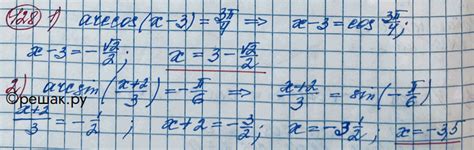 128 1) arccos(x-3) = 3π/4 ⟹ x-3 = cos 3π/4;
x-3 = -√2/2; x = 3-√2/2
2) arcsin((x+2)/3) = -π/6 ⟹ (x+2)/3 = sin(-π/6)
©решак.ру
(x+2)/3 = -1/2; x+2 = -3/2; x = -3 1/2; x = -3,5